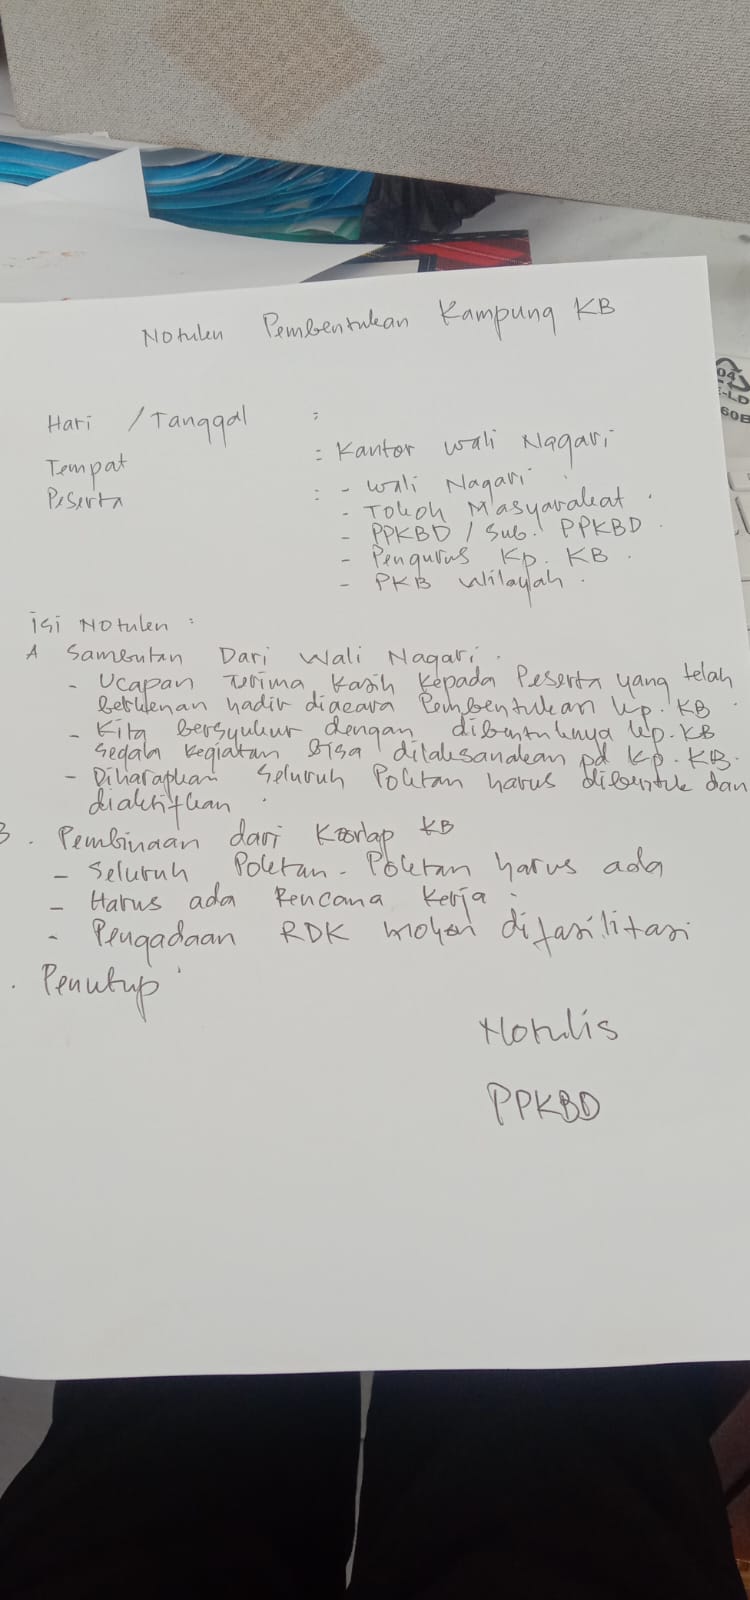 Notulen Pembentukan Kampung KB
Hari / Tanggal :
Tempat : Kantor Wali Nagari
Peserta : - Wali Nagari
- Tokoh Masyarakat.
- PPKBD / Sub. PPKBD.
- Pengurus Kp. KB.
- PKB Wilayah.
isi Notulen :
A Sambutan Dari Wali Nagari.
- Ucapan Terima Kasih kepada Peserta yang telah
berkenan hadir diacara Pembentukan kp. KB
- Kita bersyukur dengan dibentuknya kp. KB
segala kegiatan bisa dilaksanakan pd Kp. KB.
- Diharapkan Seluruh Poktan harus dibentuk dan
diaktifkan.
B. Pembinaan dari Koorlap KB
- Seluruh Poktan-Poktan harus ada
- Harus ada Rencana Kerja.
- Pengadaan RDK mohon difasilitasi
. Penutup
Notulis
PPKBD
04
E-LD
60B